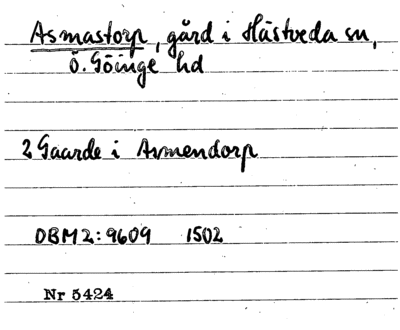 Asmastorp, gård i Hästveda sn,
Ö. Göinge hd
2 Gaarde i Asmendorp
DBM2:9609 1502
Nr 5424